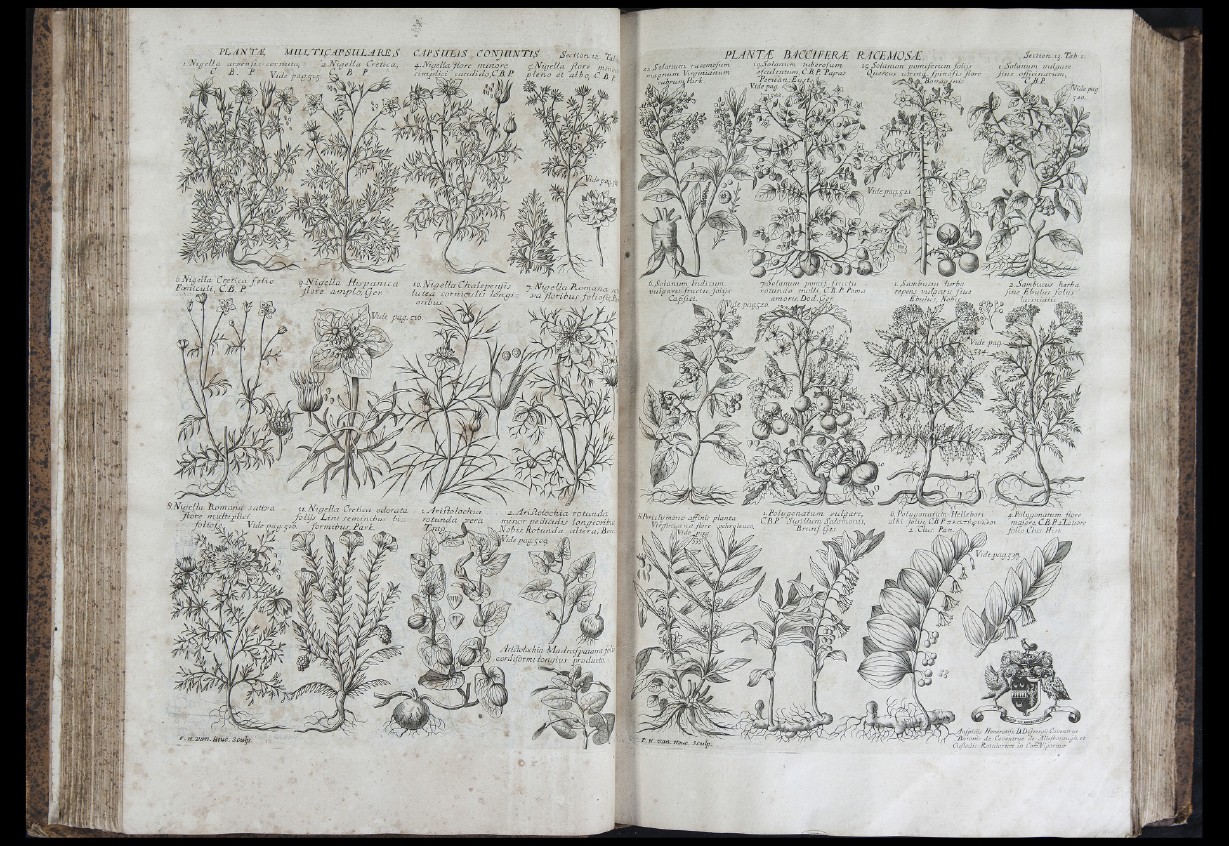 PLANTÆ MULTICAPSULARES CAPSULIS CONIUNTIS Section 12. Tab
1. Nigella arvensis cornuta,
C. B. P.
Vide pag. 515
2. Nigella Cretica,
C B P
4. Nigella flore minore
simplici candido, C.B.P.
5. Nigella flore mino
pleno et albo, C. B. P
Vide pag.
6. Nigella Cretica folio
Foeniculi, C.B.P
9. Nigella Hispanica
flore amplo, Ger.
10. Nigella Chalepensis
lutea corniculis longi
oribus
7. Nigella Romana
floribus foliosis
Vide pag. 516.
8. Nigella Romana sativa
flore multiplici
foliosa
Vide pag. 516.
11. Nigella Cretica odorata
foliis Lini seminibus
formibus Park
1. Aristolochia
rotunda vera
Trag.
2. Aristolochia rotunda
minor pediculis longioribus
Nobis Rotunda altera, Bra
Vide pag. 509.
Aristolochia Madraspatana folio
cordiforme longius producto
F. H. van. Houe. Sculp.
PLANTÆ BACCIFERÆ RACEMOSÆ.
Section 13. Tab 1.
Solanum racemosum
magnum Virginianum
rubrum Park
Solanum tuberosum
esculentum, C.B.P. Papas
Peruan. Eyst.
Vide pag.
Solanum pomiferum foliis
Quercus spinosis flore
1. Solanum vulgare
sive officinarum,
C.B.P.
Vide pag.
520.
Vide pag. 521
6. Solanum Indicum
vulgaris fructu, foliis
Capsici.
Vide pag 520.
7. Solanum pomis fructu
rotundo molli C. B. P. Poma
amoris Dod. Ger.
1. Sambucus herba
repens vulgaris sive
Ebulus, Nob.
Vide pag.
534
2. Sambucus herba
sive Ebulus foliis
laciniatis
Periclymeno affinis planta
Virginiana flore
Vide pag
1. Polygonatum vulgare,
C.B.P. Sigillum Salomonis,
Brunf. Ger.
6. Polygonatum Hellebori
albi foliis, C.B.P.
2. Clus. Pan.
4. Polygonatum flore
majore C.B.P. 1. Latiore
folio Clus. Hist.
Vide pag. 538
F. H. van. Houe. Sculp.
Auspitiis Honoratiss. D. D. Thomæ Coventrye
Baronis de Coventrye de Allesborough et
Custodis Rotulorum in Com. Vigorniæ